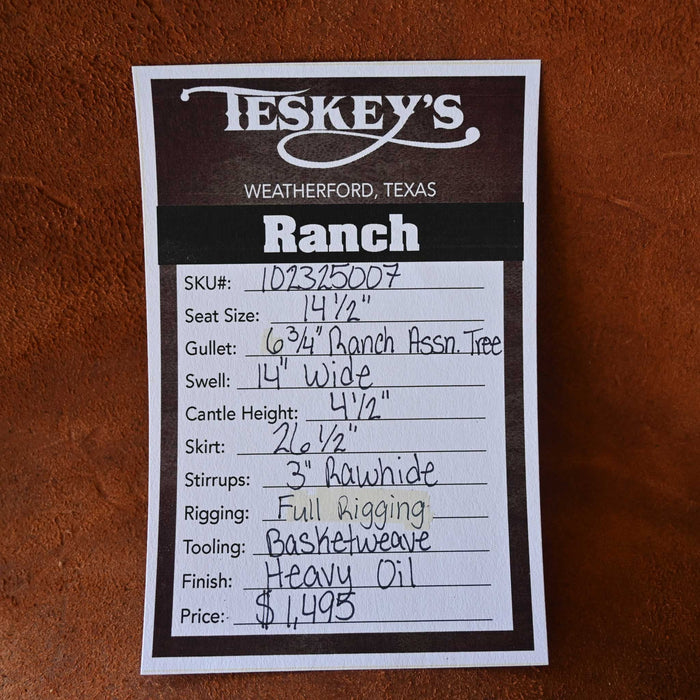 TESKEY'S
WEATHERFORD, TEXAS
Ranch
SKU#: 102325007
Seat Size: 14 1/2"
Gullet: 6 3/4" Ranch Assn. Tree
Swell: 14" Wide
Cantle Height: 4 1/2"
Skirt: 26 1/2"
Stirrups: 3" Rawhide
Rigging: Full Rigging
Tooling: Basketweave
Finish: Heavy Oil
Price: $1,495